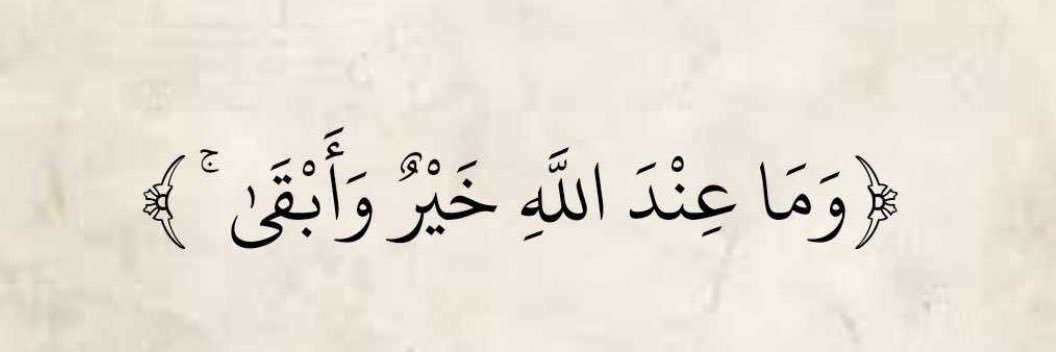 ﴿ وَمَا عِنْدَ اللَّهِ خَيْرٌ وَأَبْقَىٰ ۚ ﴾